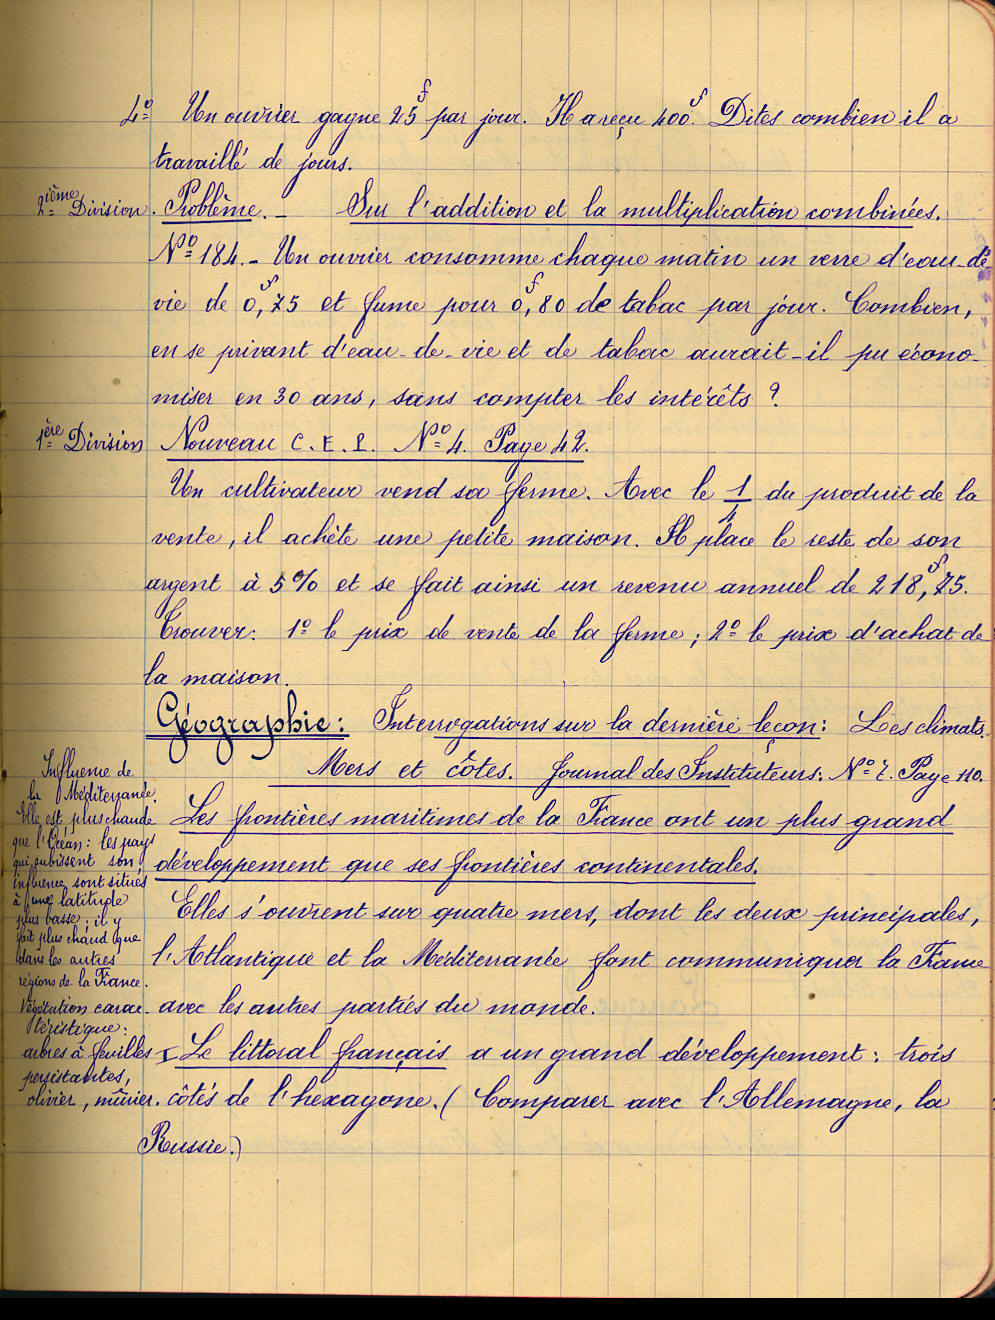 4º Un ouvrier gagne 25f par jour. Il a reçu 400f. Dites combien il a
travaillé de jours.
2ième Division. Problème. _ Sur l'addition et la multiplication combinées.
Nº 184. _ Un ouvrier consomme chaque matin un verre d'eau-de-
vie de 0f,75 et fume pour 0f,80 de tabac par jour. Combien,
en se privant d'eau-de-vie et de tabac aurait-il pu écono-
miser en 30 ans, sans compter les intérêts ?
1ère Division Nouveau C.E.P. Nº 4. Page 42.
Un cultivateur vend sa ferme. Avec le 1/4 du produit de la
vente, il achète une petite maison. Il place le reste de son
argent à 5% et se fait ainsi un revenu annuel de 218f,75.
Trouver: 1º le prix de vente de la ferme ; 2º le prix d'achat de
la maison.
Géographie: Interrogations sur la dernière leçon: Les climats.
Mers et côtes. Journal des Instituteurs. Nº 7. Page 110.
Les frontières maritimes de la France ont un plus grand
développement que ses frontières continentales.
Elles s'ouvrent sur quatre mers, dont les deux principales,
l'Atlantique et la Méditerranée font communiquer la France
avec les autres parties du monde.
I Le littoral français a un grand développement : trois
côtés de l'hexagone. ( Comparer avec l'Allemagne, la
Russie.)
Influence de
la Méditerranée.
Elle est plus chaude
que l'Océan : les pays
qui subissent son
influence sont situés
à une latitude
plus basse ; il y
fait plus chaud que
dans les autres
régions de la France.
Végétation carac-
téristique :
arbres à feuilles
persistantes,
olivier, mûrier.